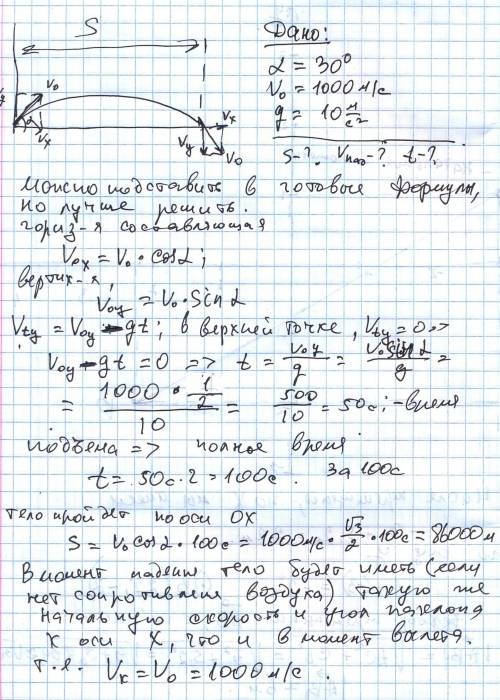 S
Дано:
α = 30°
V₀ = 1000 м/с
g = 10 м/с²
V₀
α
Vx
Vx
Vy
V₀
S-? Vпад-? t-?
Можно подставить в готовые формулы,
но лучше решить.
гориз-я составляющая
V₀x = V₀ · cosα;
вертик-я,
V₀y = V₀ · Sinα
Vty = V₀y - gt; в верхней точке, Vty = 0 =>
V₀y - gt = 0 => t = V₀y/g = V₀ Sinα/g =
= 1000 · 1/2 / 10 = 500/10 = 50с; - время
подъёма => полное время
t = 50с · 2 = 100с. За 100с
тело пройдёт по оси OX
S = V₀ cosα · 100с = 1000м/с · √3/2 · 100с = 86000м
В момент падения тело будет иметь (если
нет сопротивления воздуха) такую же
начальную скорость и угол наклона
к оси X, что и в момент вылета.
т.е. Vк = V₀ = 1000 м/с.